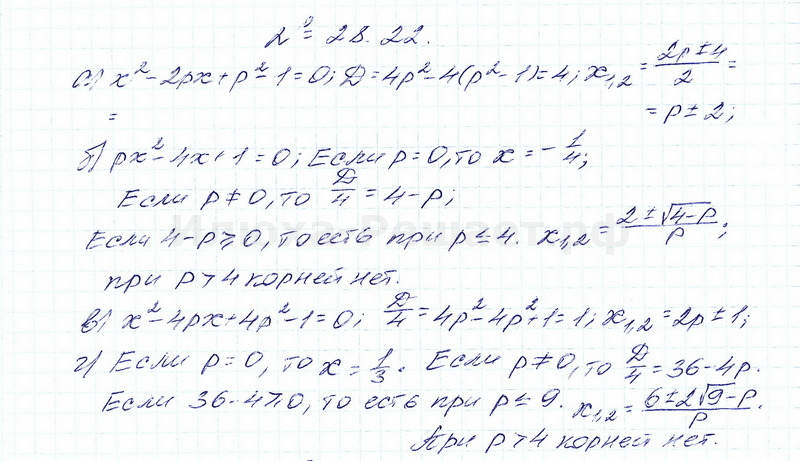 № 28.22.
а) x² - 2px + p² - 1 = 0; D = 4p² - 4(p² - 1) = 4; x₁,₂ = (2p ± 4)/2 =
= = p ± 2;
б) px² - 4x + 1 = 0; Если p = 0, то x = -1/4;
Если p ≠ 0, то D/4 = 4 - p;
Если 4 - p ≥ 0, то есть при p ≤ 4. x₁,₂ = (2 ± √(4 - p))/p;
при p > 4 корней нет.
в) x² - 4px + 4p² - 1 = 0; D/4 = 4p² - 4p² + 1 = 1; x₁,₂ = 2p ± 1;
г) Если p = 0, то x = 1/3. Если p ≠ 0, то D/4 = 36 - 4p.
Если 36 - 4 ≥ 0, то есть при p ≤ 9. x₁,₂ = (6 ± 2√9 - p)/p.
При p > 4 корней нет.
Илюха-Решает.рф